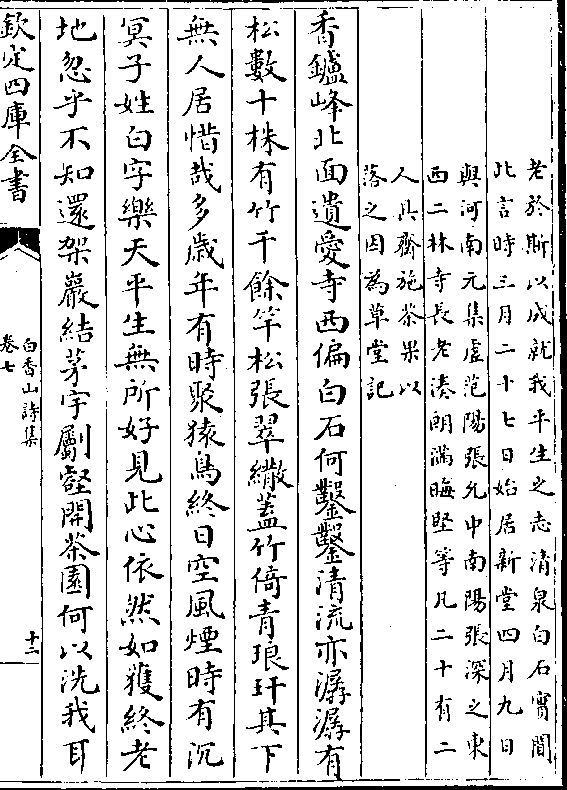 老於斯以成就我平生之志清泉白石實聞
此言時三月二十七日始居新堂四月九日
與河南元集虛范陽張允中南陽張深之東
西二林寺長老湊朗滿晦堅等凡二十有二
人具齋施茶果以
落之因為草堂記
香鑪峰北面遺愛寺西偏白石何鑿鑿清流亦潺潺有
松數十株有竹千餘竿松張翠繖蓋竹倚青琅玕其下
無人居惜哉多歲年有時聚猿鳥終日空風煙時有沉
冥子姓白字樂天平生無所好見此心依然如獲終老
地忽乎不知還架巖結茅宇劚壑開茶園何以洗我耳
欽定四庫全書
白香山詩集
卷七
十二